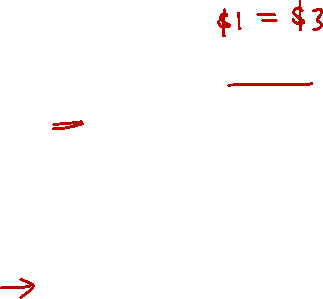 $1 = $3
=
→